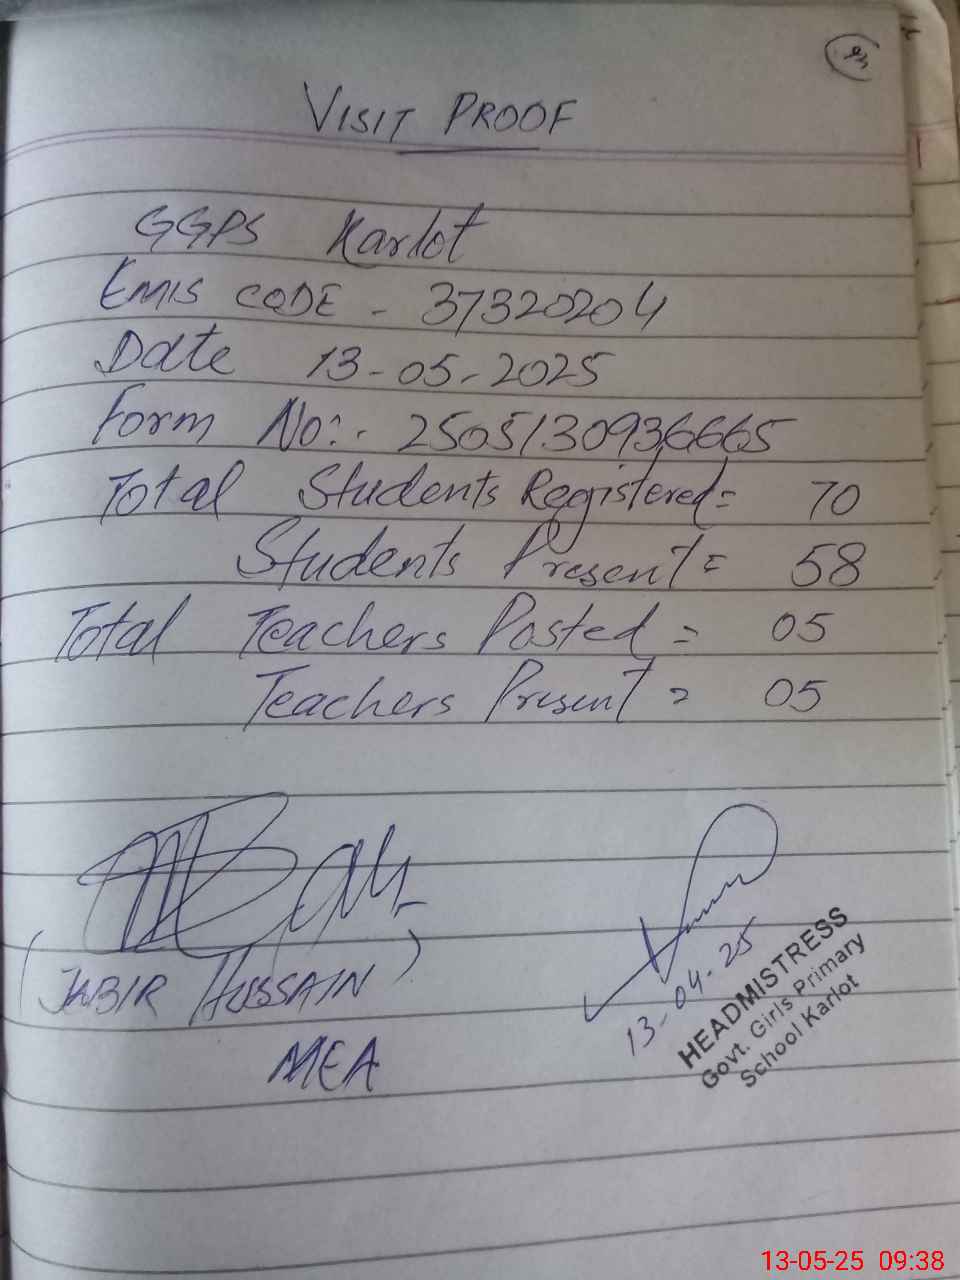 VISIT PROOF
GGPS Karlot
EMIS CODE - 37320204
Date 13-05-2025
Form No:- 2505130936665
Total Students Registered = 70
Students Present = 58
Total Teachers Posted = 05
Teachers Present = 05
(JABIR HUSSAIN)
MEA
13-04-25
HEADMISTRESS
Govt. Girls Primary
School Karlot
13-05-25 09:38